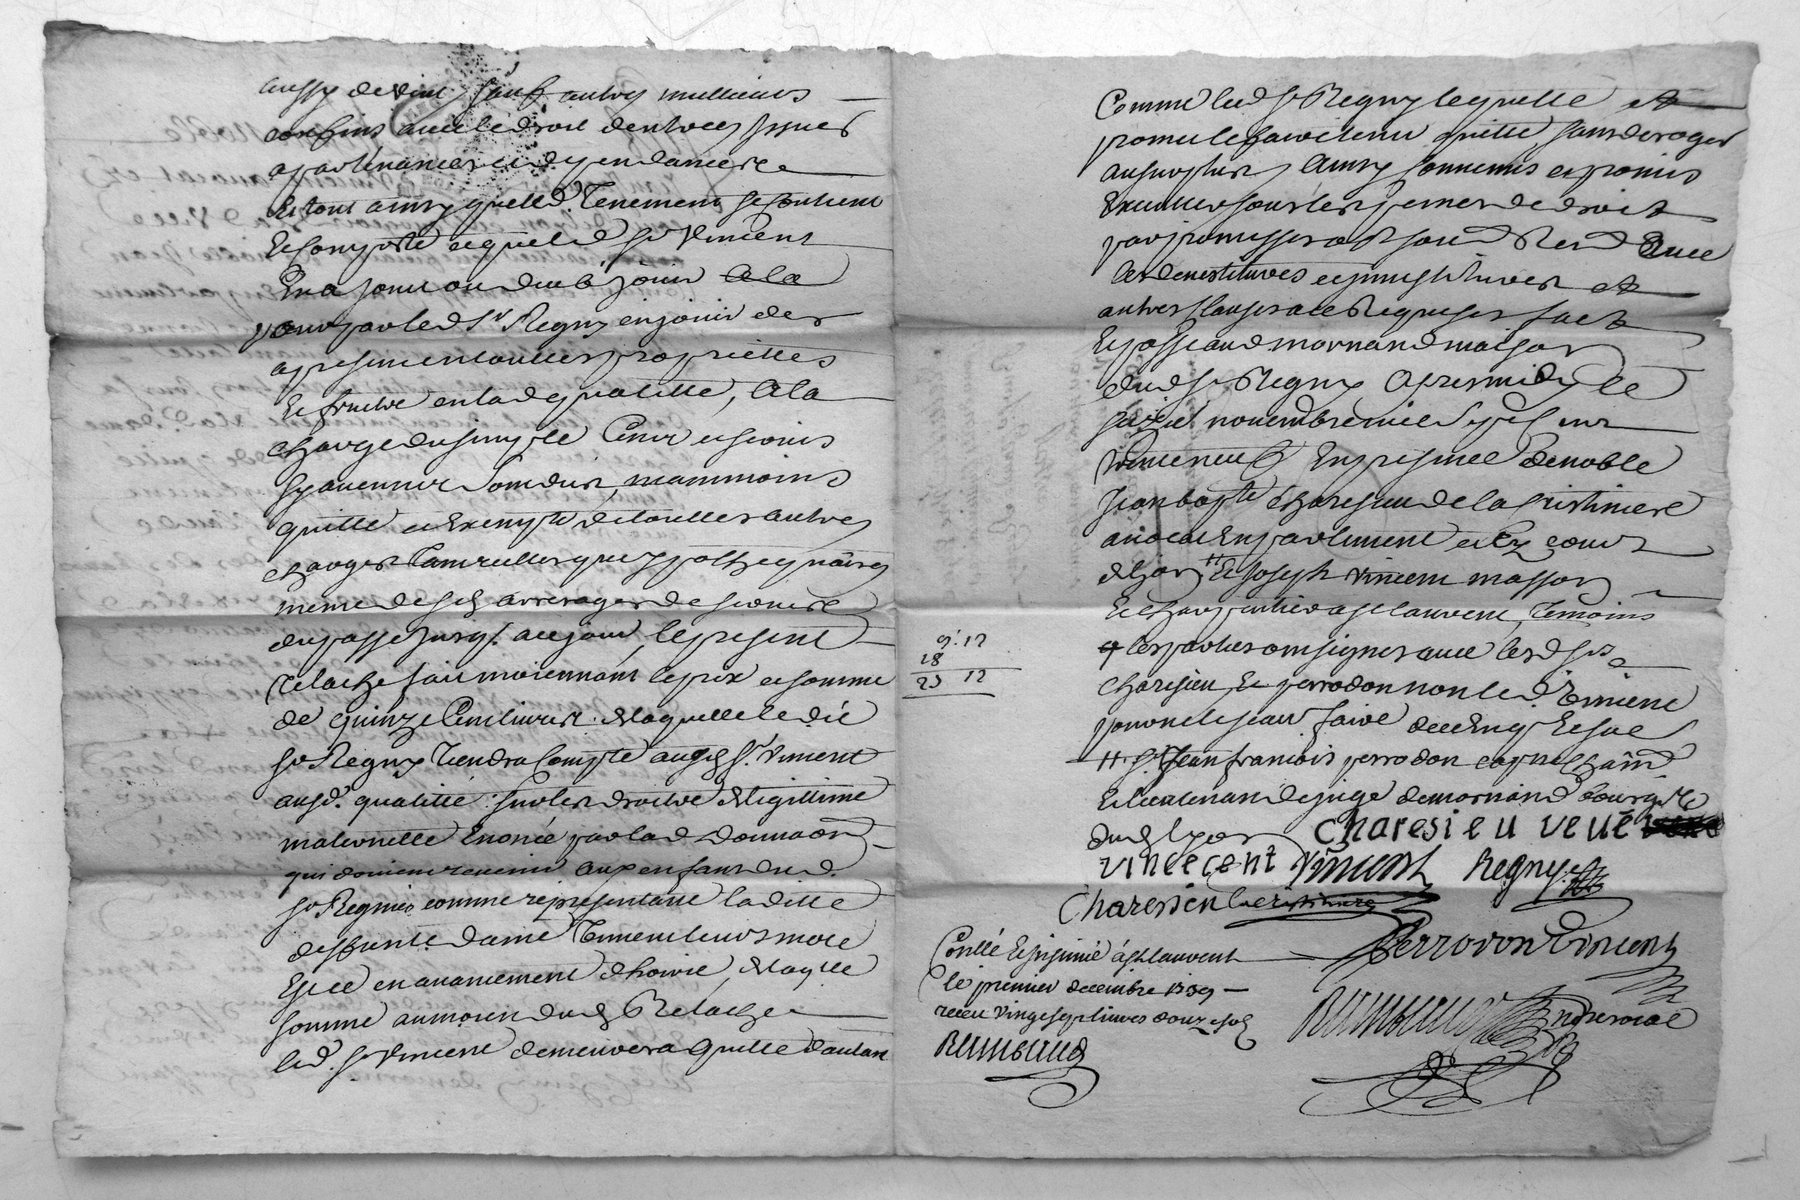 aussy de vient sauf autres meilleurs
confins avec le droit d'entrees issues
apartenances et dependances
Et tout ainsy que led Tenement se contient
Et comporte et que led sr Vincent
En a joui ou deub jouir
pour par led Sr Regny en jouir des
a present en toutte propriettes
Et fruitre en lad qualitte, a la
charge du simple Cens et servis
sy aucun en sont dus, neanmoins
quitte et Exempte de touttes autres
charges tant reelles que ypothequaires
meme desd arrerages de servis
du passe jusqs a ce jour, le present
relache fait moiennant le prix et somme
de quinze Cent livres de laquelle le dit
sr Regny tiendra Compte aud Sr Vincent
ausd. qualitté sur les droits de legitime
maternelle Enoncée par lad donnaon
qui doivent revenir aux enfans dud.
sr Regnie comme representant laditte
deffunte dame Vincent leur mere
Et ce en avancement d'hoirie de laqlle
somme au moien dud Relache
led. sr Vincent demeurera quitte d'autant
Comme led sr Regny le quitte et
promet le faire tenir quitte, sans deroger
au surplus, ainsy convenus et promis
Executer sous les peines de droit
par promesses obson Rend Avec
les destitutives et institutives et
autres clauses a ce Requises fait
Et passe aud mornand maison
dud sr Regny Apres midy le
seize novembre mil sept cent
trente neuf En presence de noble
Jean bapte Charesieu de la cristiniere
avocat En parlement et Ez cours
de lyon # Et Joseph Vincent masson
Et charpentier a st laurent, temoins
les parties ont signes avec lesd srs
Charesieu, Et perrodon non led Vincent
pour ne le scavoir faire de ce Enquis Et sue
# sr Jean francois perrodon capne chatn
Et lieutenant de juge de mornand bourgs
dud lyon Charesieu veuë
vincecent Vincent Regny
Charesieu Lacristiniere
Perrodon Vincent
9: 12
18
27 12
Conllé Et insinué à st laurent
le premier decembre 1739
receu vingt sept livres douze sols
Rambaud
Rambaud no.re roial